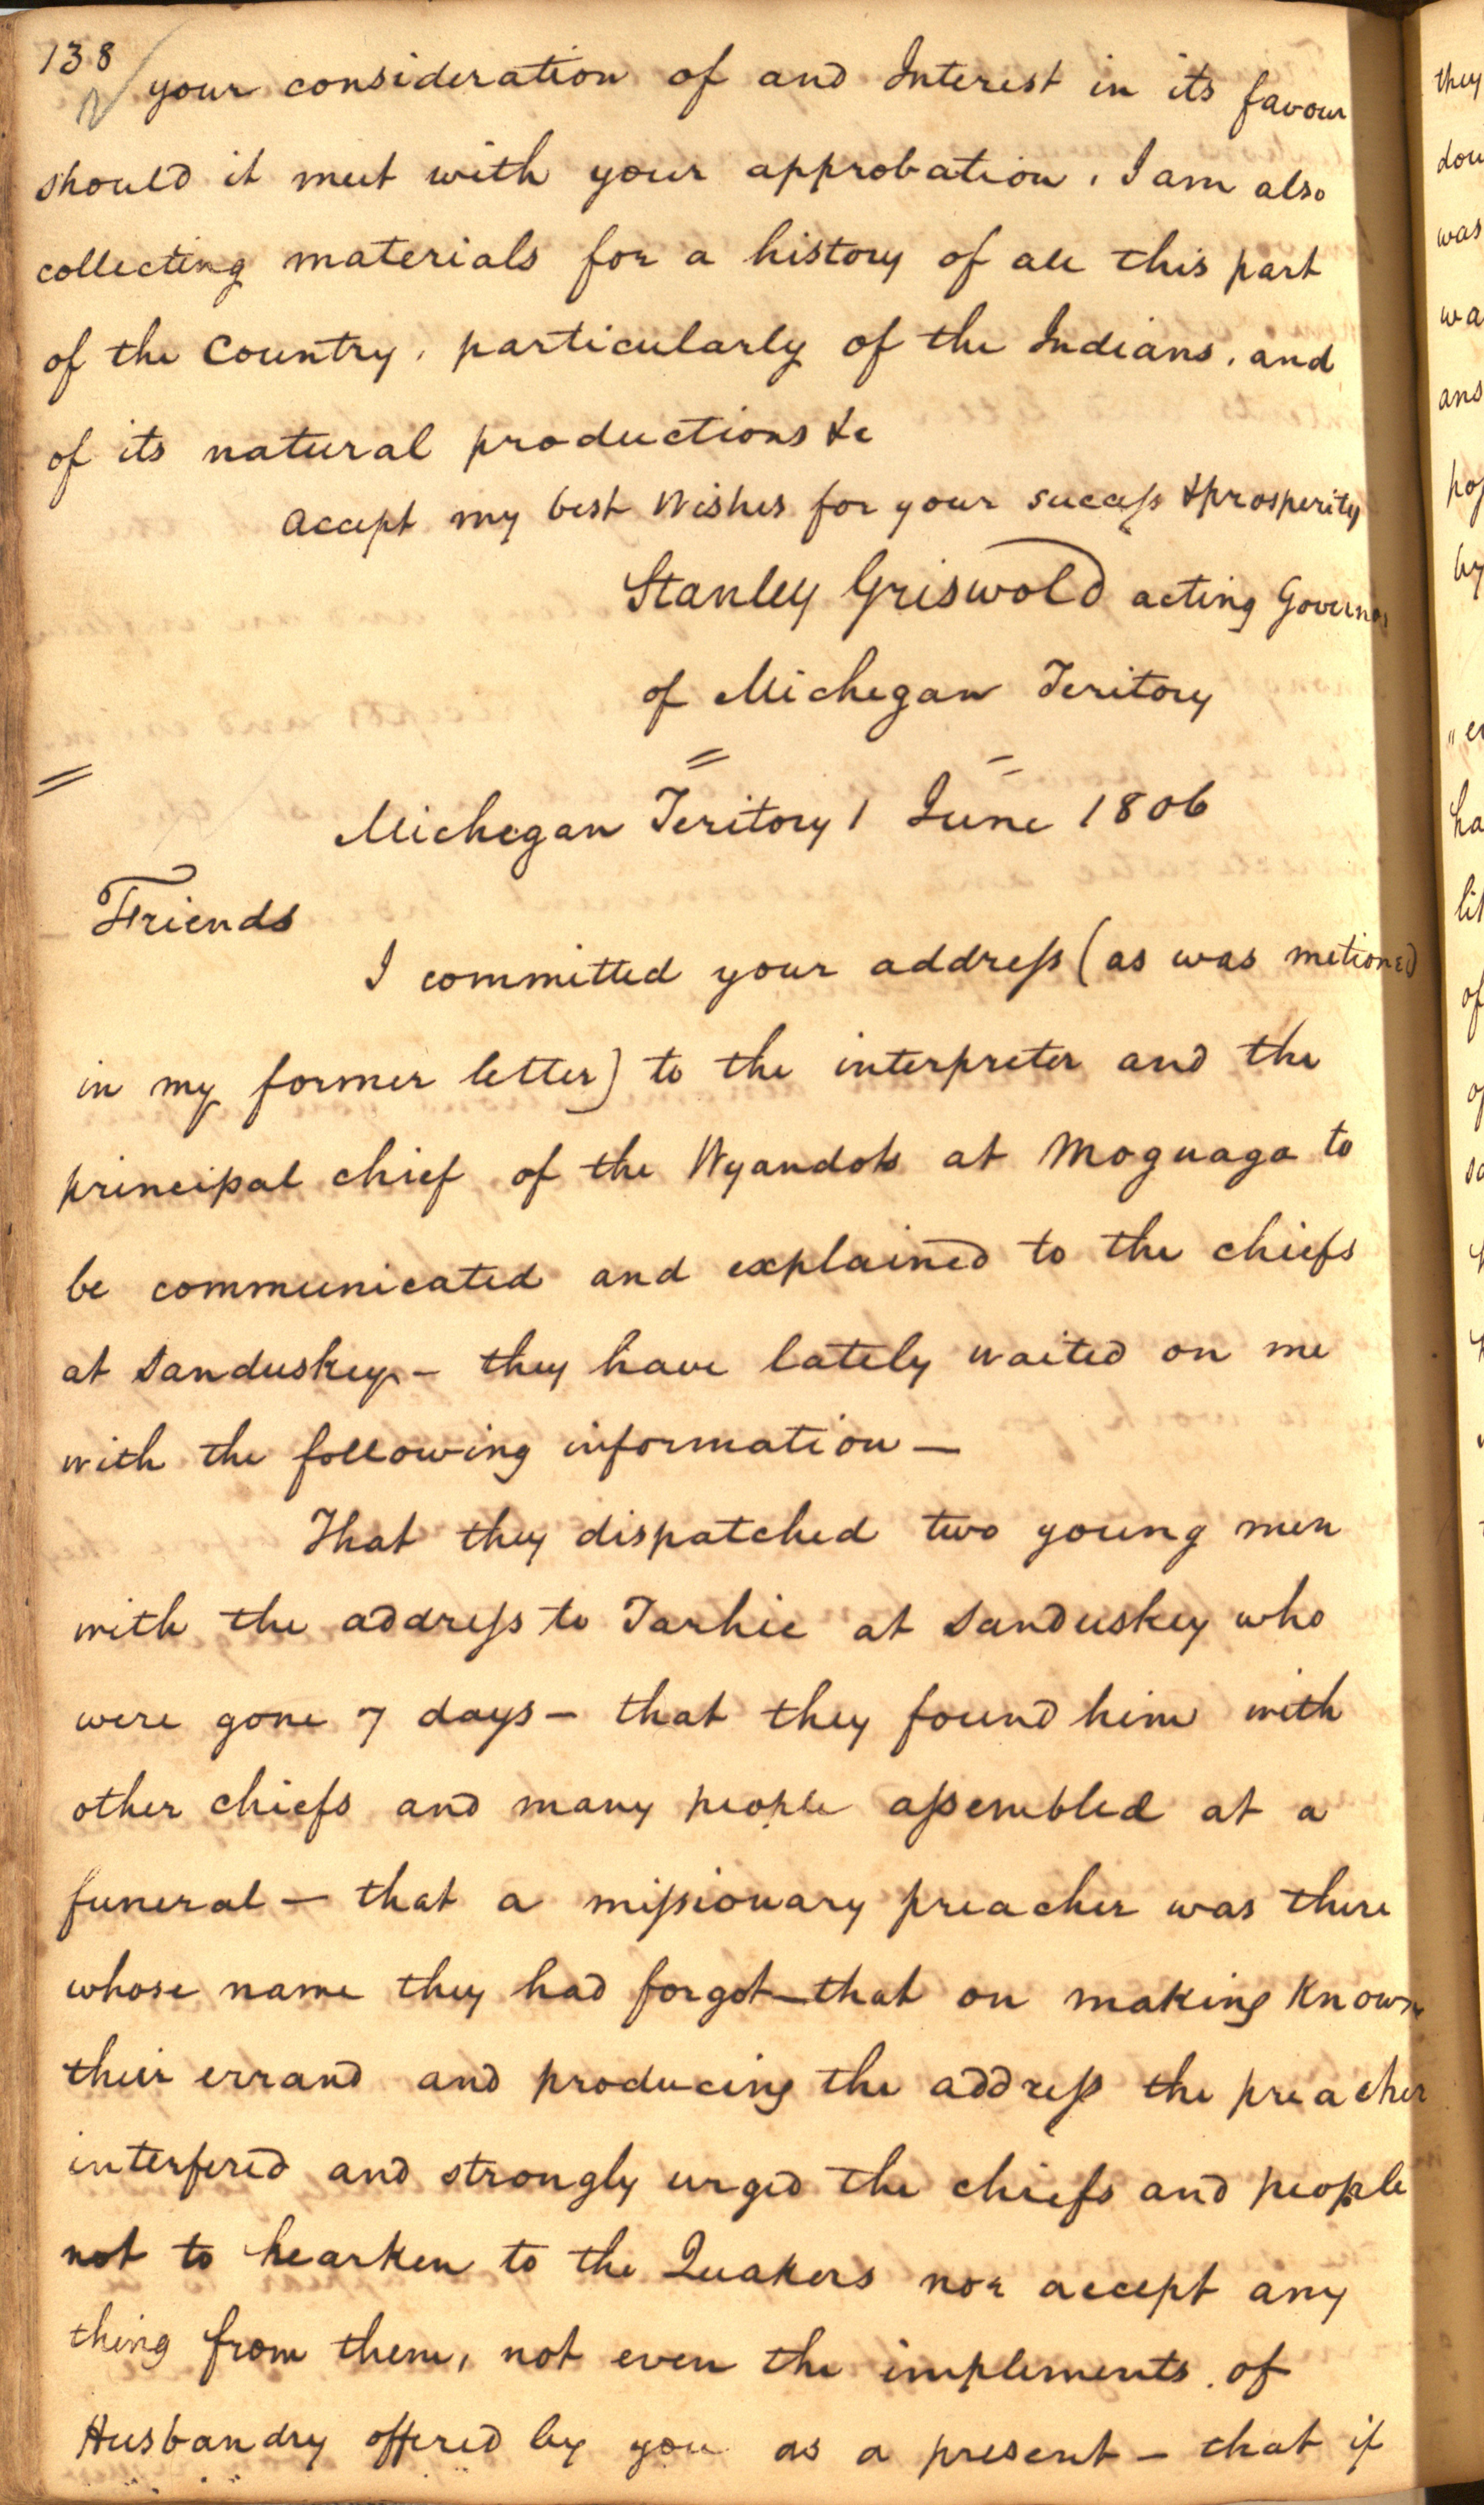 138
your consideration of and Interest in its favour
should it meet with your approbation. I am also
collecting materials for a history of all this part
of the Country, particularly of the Indians, and
of its natural productions &c
Accept my best Wishes for your success & prosperity
Stanley Griswold acting Governor
of Michegan Teritory
Michegan Teritory 1 June 1806
Friends
I committed your address (as was metioned
in my former letter) to the interpreter and the
principal chief of the Wyandots at Moguago to
be communicated and explained to the chiefs
at Sanduskey - they have lately waited on me
with the following information —
That they dispatched two young men
with the address to Tarhie at Sanduskey who
were gone 7 days — that they found him with
other chiefs and many people assembled at a
funeral — that a missionary preacher was there
whose name they had forgot — that on making Known
their errand and producing the address the preacher
interfered and strongly urged the chiefs and people
not to hearken to the Quakers nor accept any
thing from them, not even the implements of
Husbandry offered by you as a present — that if
they
dou
was
wa
ans
by
ha
lit
of